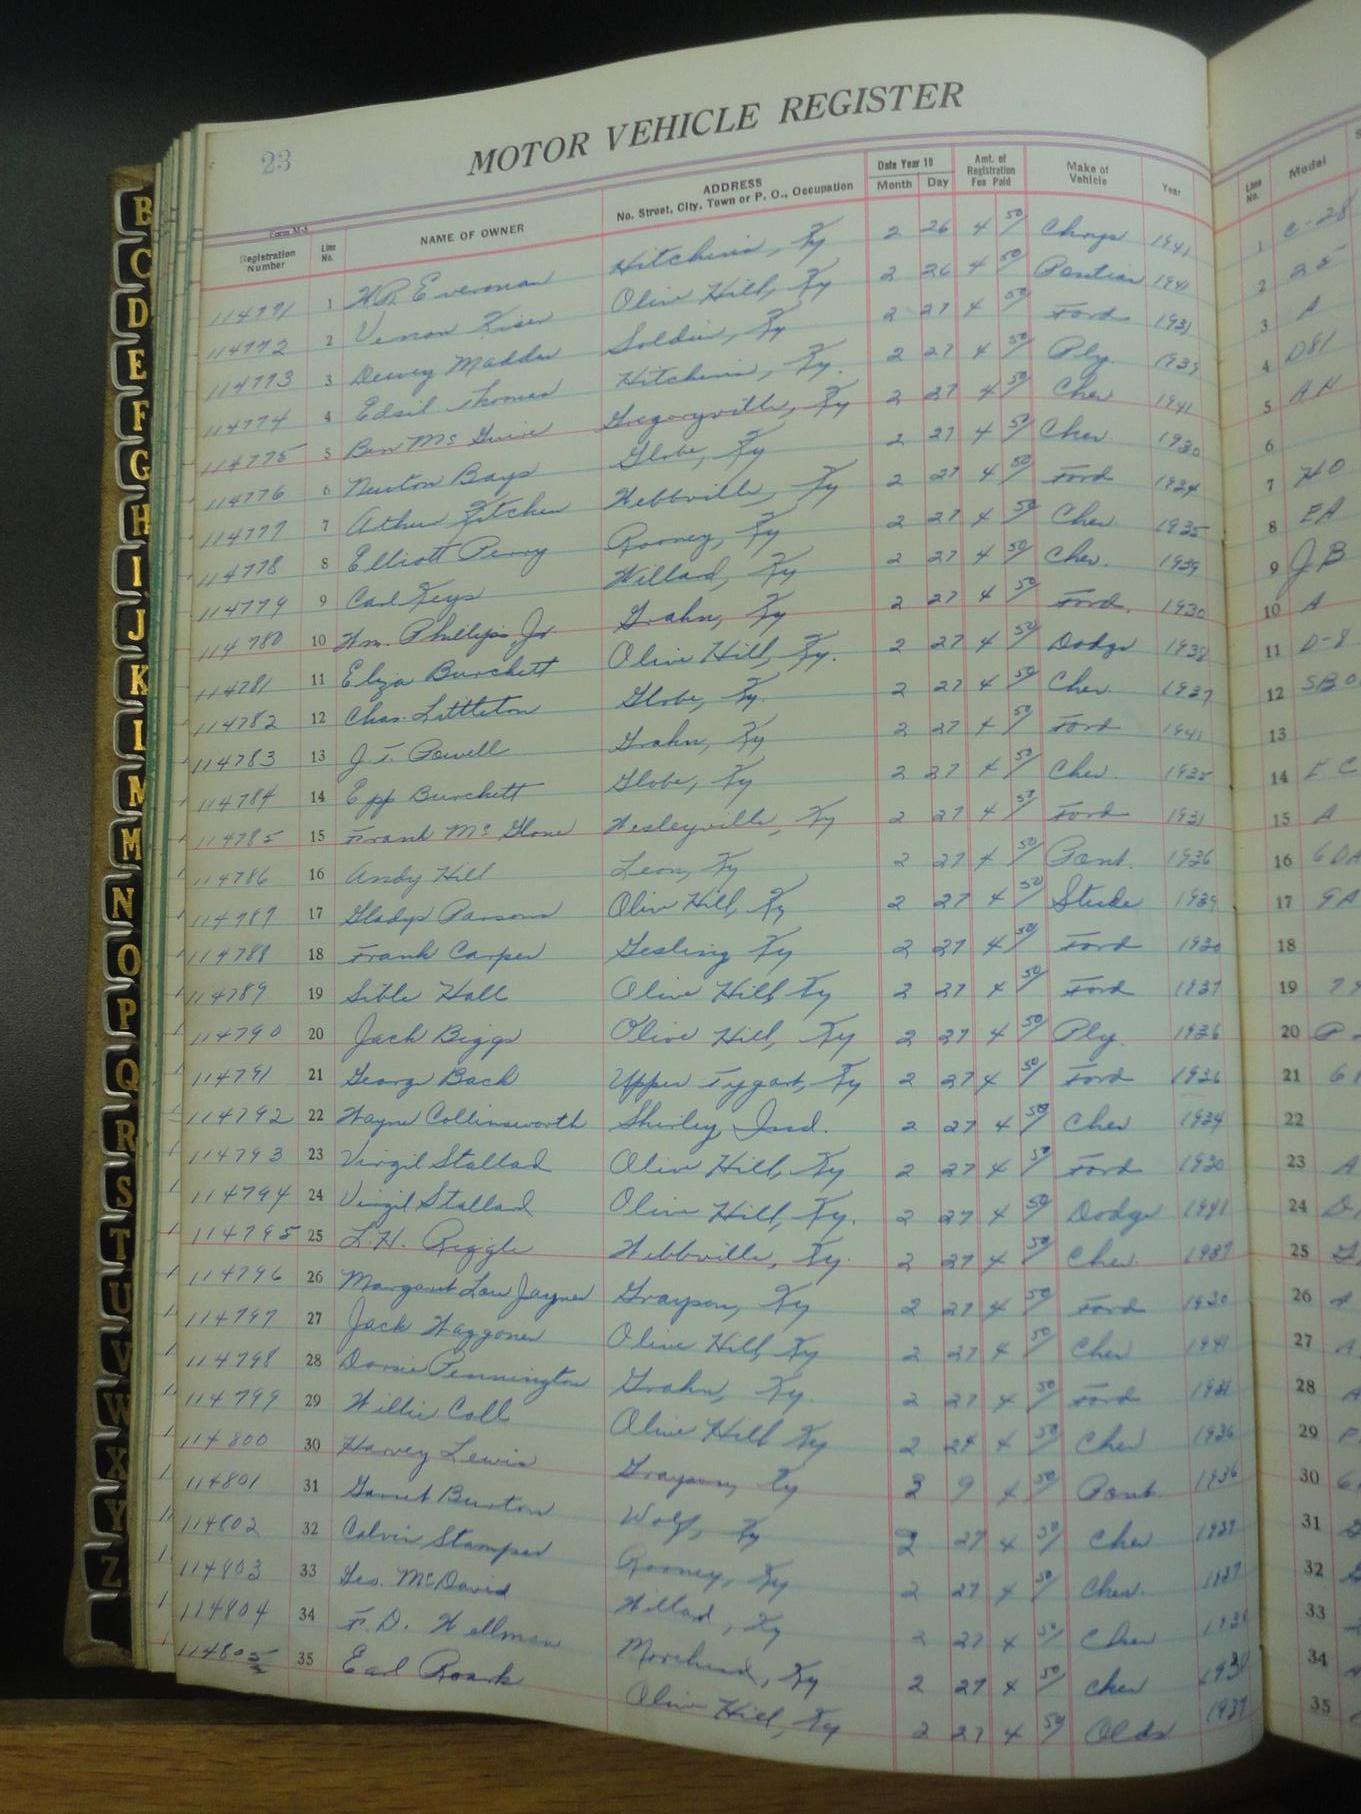 23 MOTOR VEHICLE REGISTER
Form M-4
Registration Number Line No. NAME OF OWNER ADDRESS No. Street, City, Town or P. O., Occupation Date Year 19 Month Day Amt. of Registration Fee Paid Make of Vehicle Year Line No. Model
114771 1 W.R. Everman Hitchins, Ky 2 26 4 50/ Chrys 1941 1 C-28
114772 2 Vernon Kiser Olive Hill, Ky 2 26 4 50/ Pontiac 1941 2 25
114773 3 Dewey Madden Soldier, Ky 2 27 4 50/ Ford 1931 3 A
114774 4 Edsil Thomas Hitchins, Ky. 2 27 4 50/ Ply 1939 4 D81
114775 5 Ben McGuire Gregoryville, Ky 2 27 4 50/ Chev 1941 5 AH
114776 6 Newton Bays Globe, Ky 2 27 4 50/ Chev. 1930 6
114777 7 Arthur Kitchen Webbville, Ky 2 27 4 50/ Ford 1934 7 40
114778 8 Elliott Perry Rooney, Ky 2 27 4 50/ Chev. 1935 8 EA
114779 9 Carl Keys Willard, Ky 2 27 4 50/ Chev. 1939 9 JB
114780 10 Wm. Phillips Jr Grahn, Ky 2 27 4 50/ Ford. 1930 10 A
114781 11 Eliza Burchett Olive Hill, Ky. 2 27 4 50/ Dodge 1938 11 D-8
114782 12 Chas. Littleton Globe, Ky. 2 27 4 50/ Chev. 1937 12
114783 13 J. T. Powell Grahn, Ky 2 27 4 50/ Ford 1941 13
114784 14 Epp Burchett Globe, Ky 2 27 4 50/ Chev. 1935 14 EC
114785 15 Frank McGlone Wesleyville, Ky 2 27 4 50/ Ford 1931 15 A
114786 16 Andy Hill Leon, Ky 2 27 4 50/ Pont. 1936 16
114787 17 Gladys Parsons Olive Hill, Ky 2 27 4 50/ Stude 1939 17 9A
114788 18 Frank Carper Gesling Ky 2 27 4 50/ Ford 1930 18
114789 19 Sible Hall Olive Hill Ky 2 27 4 50/ Ford 1937 19
114790 20 Jack Biggs Olive Hill, Ky 2 27 4 50/ Ply. 1936 20
114791 21 George Back Upper Tygart, Ky 2 27 4 50/ Ford 1936 21
114792 22 Wayne Collinsworth Shirley, Ind. 2 27 4 50/ Chev 1934 22
114793 23 Virgil Stallard Olive Hill, Ky 2 27 4 50/ Ford 1930 23 A
114794 24 Virgil Stallard Olive Hill, Ky. 2 27 4 50/ Dodge 1941 24
114795 25 L.H. Riggle Webbville, Ky. 2 27 4 50/ Chev. 1937 25
114796 26 Margaret Lou Jayner Grayson, Ky 2 27 4 50/ Ford 1930 26 A
114797 27 Jack Waggoner Olive Hill, Ky 2 27 4 50/ Chev 1941 27
114798 28 Dorsie Pennington Grahn, Ky. 2 27 4 50/ Ford 1931 28 A
114799 29 Willie Call Olive Hill Ky 2 27 4 50/ Chev 1936 29
114800 30 Harvey Lewis Grayson, Ky 2 9 4 50/ Pont. 1936 30
114801 31 Garnet Burton Wolf, Ky 2 27 4 50/ Chev 1937 31
114802 32 Calvin Stamper Rooney, Ky 2 27 4 50/ Chev. 1937 32
114803 33 Geo. McDavid Willard, Ky 2 27 4 50/ Chev 33
114804 34 F.D. Wellman Morehead, Ky 2 27 4 50/ Chev 34
114805 35 Earl Roark Olive Hill, Ky 2 27 4 50 Olds 1937 35
B
C
D
E
F
G
H
I
J
K
L
M
M
N
O
P
Q
R
S
T
U
V
W
X
Y
Z